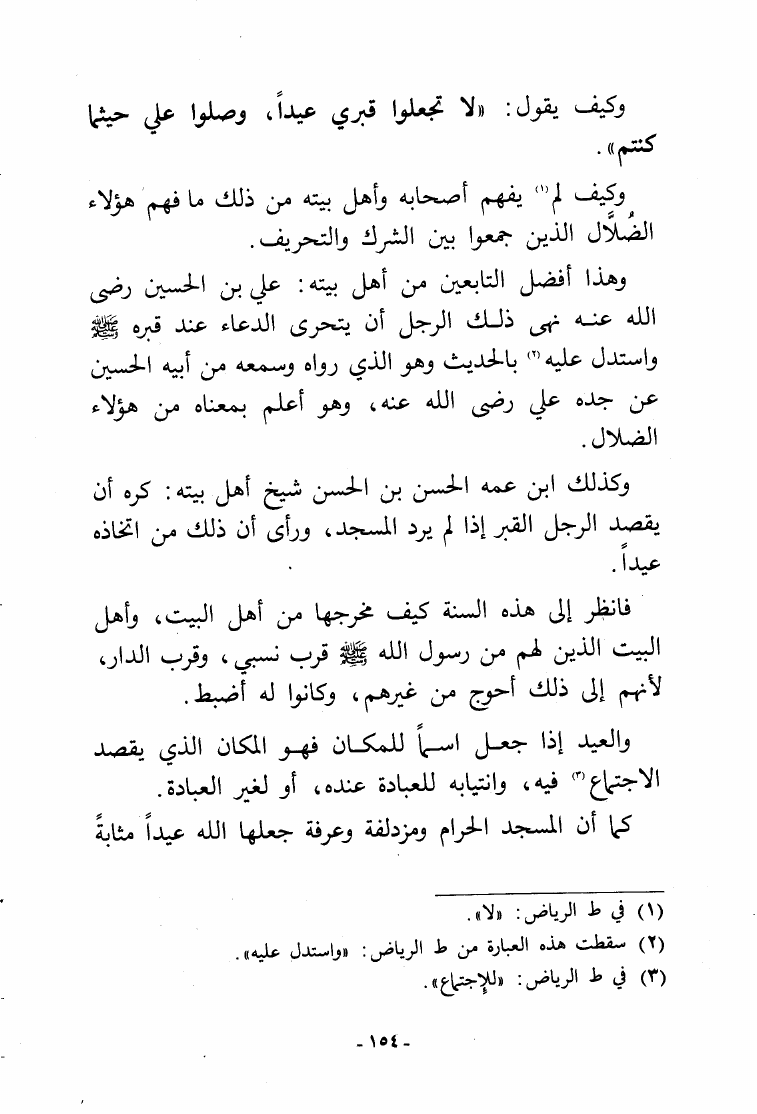 وكيف يقول: «لا تجعلوا قبري عيداً، وصلوا علي حيثما
كنتم».
وكيف لم(١) يفهم أصحابه وأهل بيته من ذلك ما فهم هؤلاء
الضُلاَّل الذين جمعوا بين الشرك والتحريف.
وهذا أفضل التابعين من أهل بيته: علي بن الحسين رضى
الله عنه نهى ذلك الرجل أن يتحرى الدعاء عند قبره ﷺ
واستدل عليه(٢) بالحديث وهو الذي رواه وسمعه من أبيه الحسين
عن جده علي رضى الله عنه، وهو أعلم بمعناه من هؤلاء
الضلال.
وكذلك ابن عمه الحسن بن الحسن شيخ أهل بيته: كره أن
يقصد الرجل القبر إذا لم يرد المسجد، ورأى أن ذلك من اتخاذه
عيداً.
فانظر إلى هذه السنة كيف مخرجها من أهل البيت، وأهل
البيت الذين لهم من رسول الله ﷺ قرب نسبي، وقرب الدار،
لأنهم إلى ذلك أحوج من غيرهم، وكانوا له أضبط.
والعيد إذا جعل اسماً للمكان فهو المكان الذي يقصد
الاجتماع(٣) فيه، وانتيابه للعبادة عنده، أو لغير العبادة.
كما أن المسجد الحرام ومزدلفة وعرفة جعلها الله عيداً مثابةً
(١) في ط الرياض: «لا».
(٢) سقطت هذه العبارة من ط الرياض: «واستدل عليه».
(٣) في ط الرياض: «للإجتماع».
- ١٥٤ -